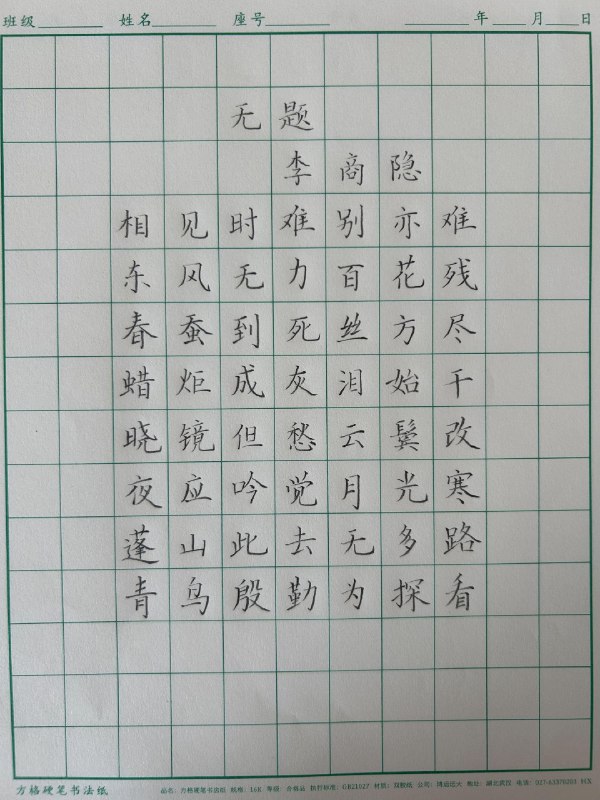 班级 姓名 座号 年 月 日
无题
李商隐
相见时难别亦难
东风无力百花残
春蚕到死丝方尽
蜡炬成灰泪始干
晓镜但愁云鬓改
夜应吟觉月光寒
蓬山此去无多路
青鸟殷勤为探看
方格硬笔书法纸 品名：方格硬笔书法纸 规格：16K 等级：合格品 执行标准：GB21027 材质：双胶纸 公司：博远远大 地址：湖北武汉 电话：027-63370203